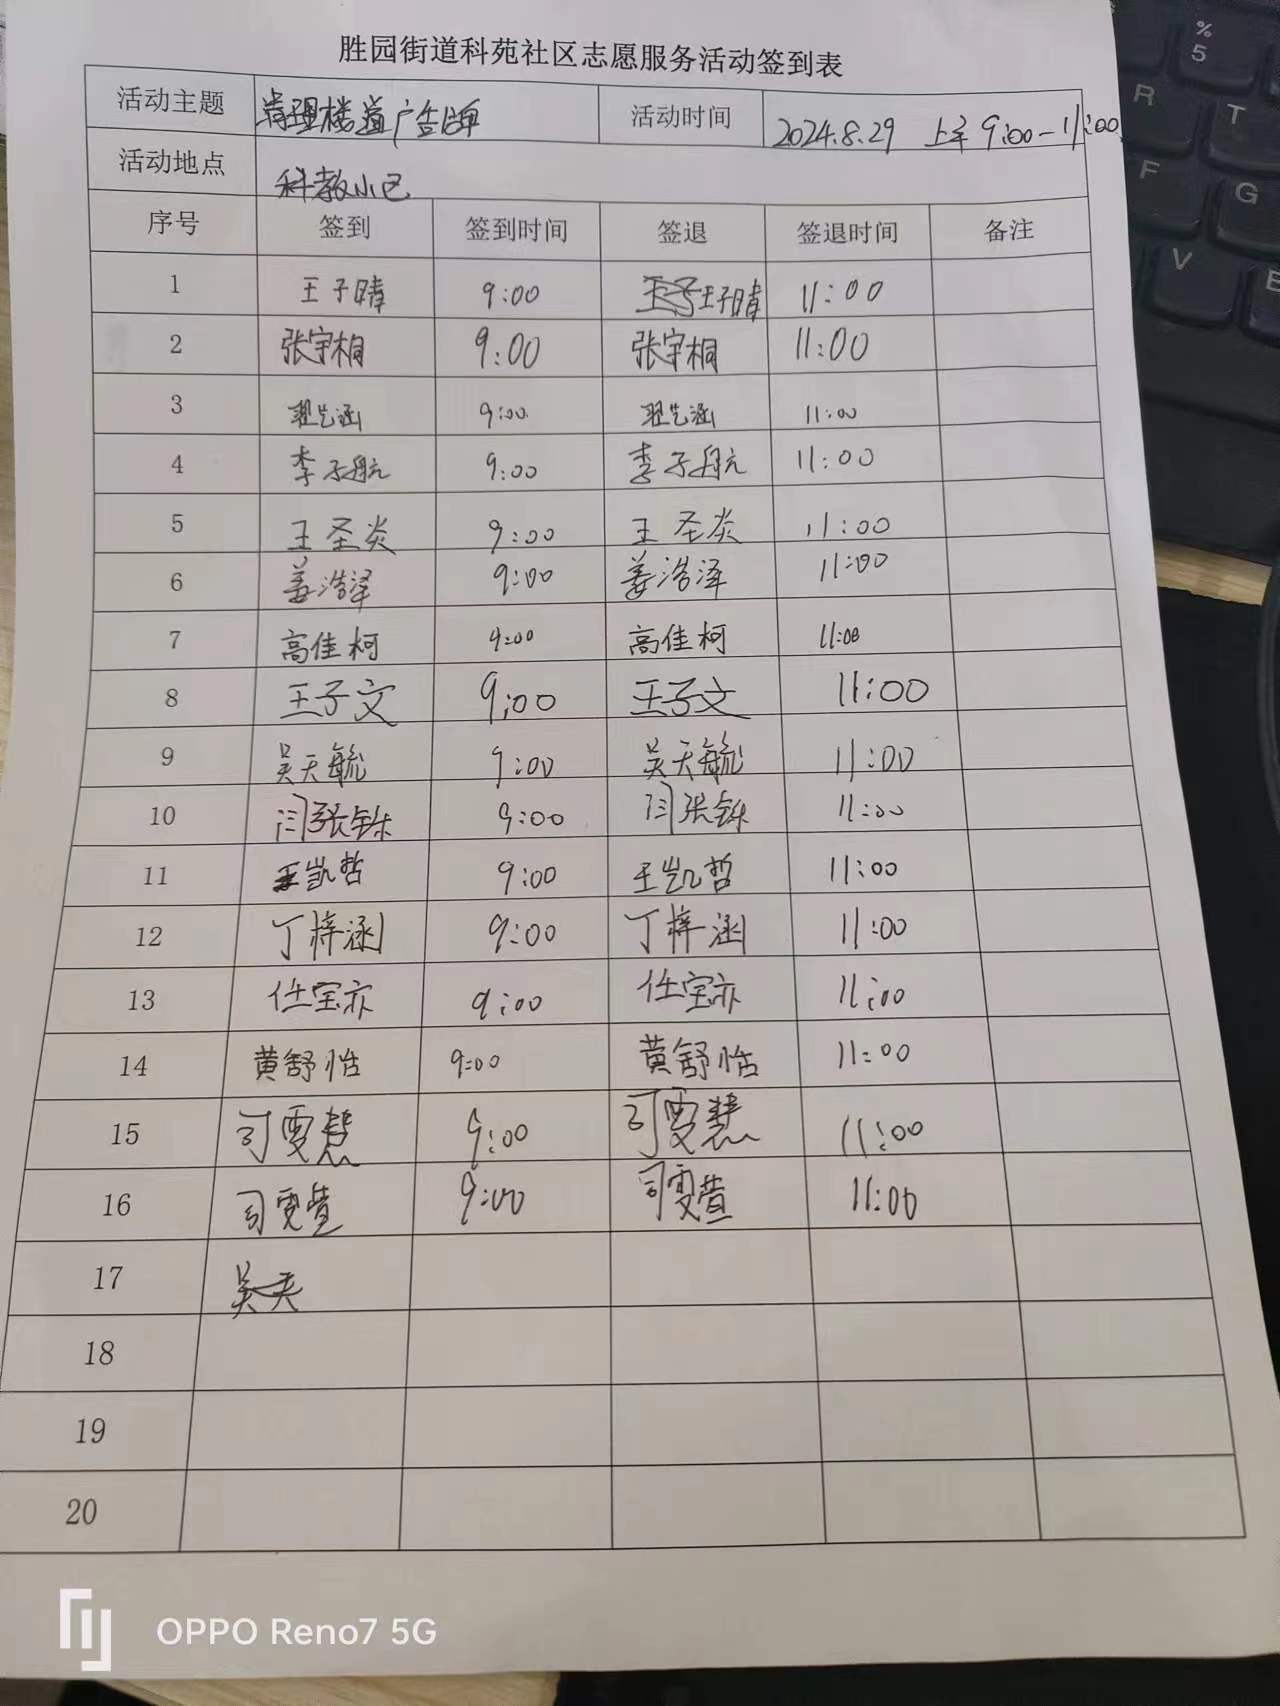 胜园街道科苑社区志愿服务活动签到表
活动主题 清理楼道广告牌 活动时间 2024.8.29 上午 9:00-11:00
活动地点 科教小区
序号 签到 签到时间 签退 签退时间 备注
1 王子晴 9:00 王子晴 11:00
2 张宇桐 9:00 张宇桐 11:00
3 9:00 11:00
4 李子航 9:00 李子航 11:00
5 王圣炎 9:00 王圣炎 11:00
6 姜浩泽 9:00 姜浩泽 11:00
7 高佳柯 9:00 高佳柯 11:00
8 王子文 9:00 王子文 11:00
9 吴天毓 9:00 吴天毓 11:00
10 闫张铄 9:00 闫张铄 11:00
11 王凯哲 9:00 王凯哲 11:00
12 丁梓涵 9:00 丁梓涵 11:00
13 任宝亦 9:00 任宝亦 11:00
14 黄舒怡 9:00 黄舒怡 11:00
15 司雯慧 9:00 司雯慧 11:00
16 司雯萱 9:00 司雯萱 11:00
17 吴天
18
19
20
OPPO Reno7 5G
%
5
R
T
F
G
V